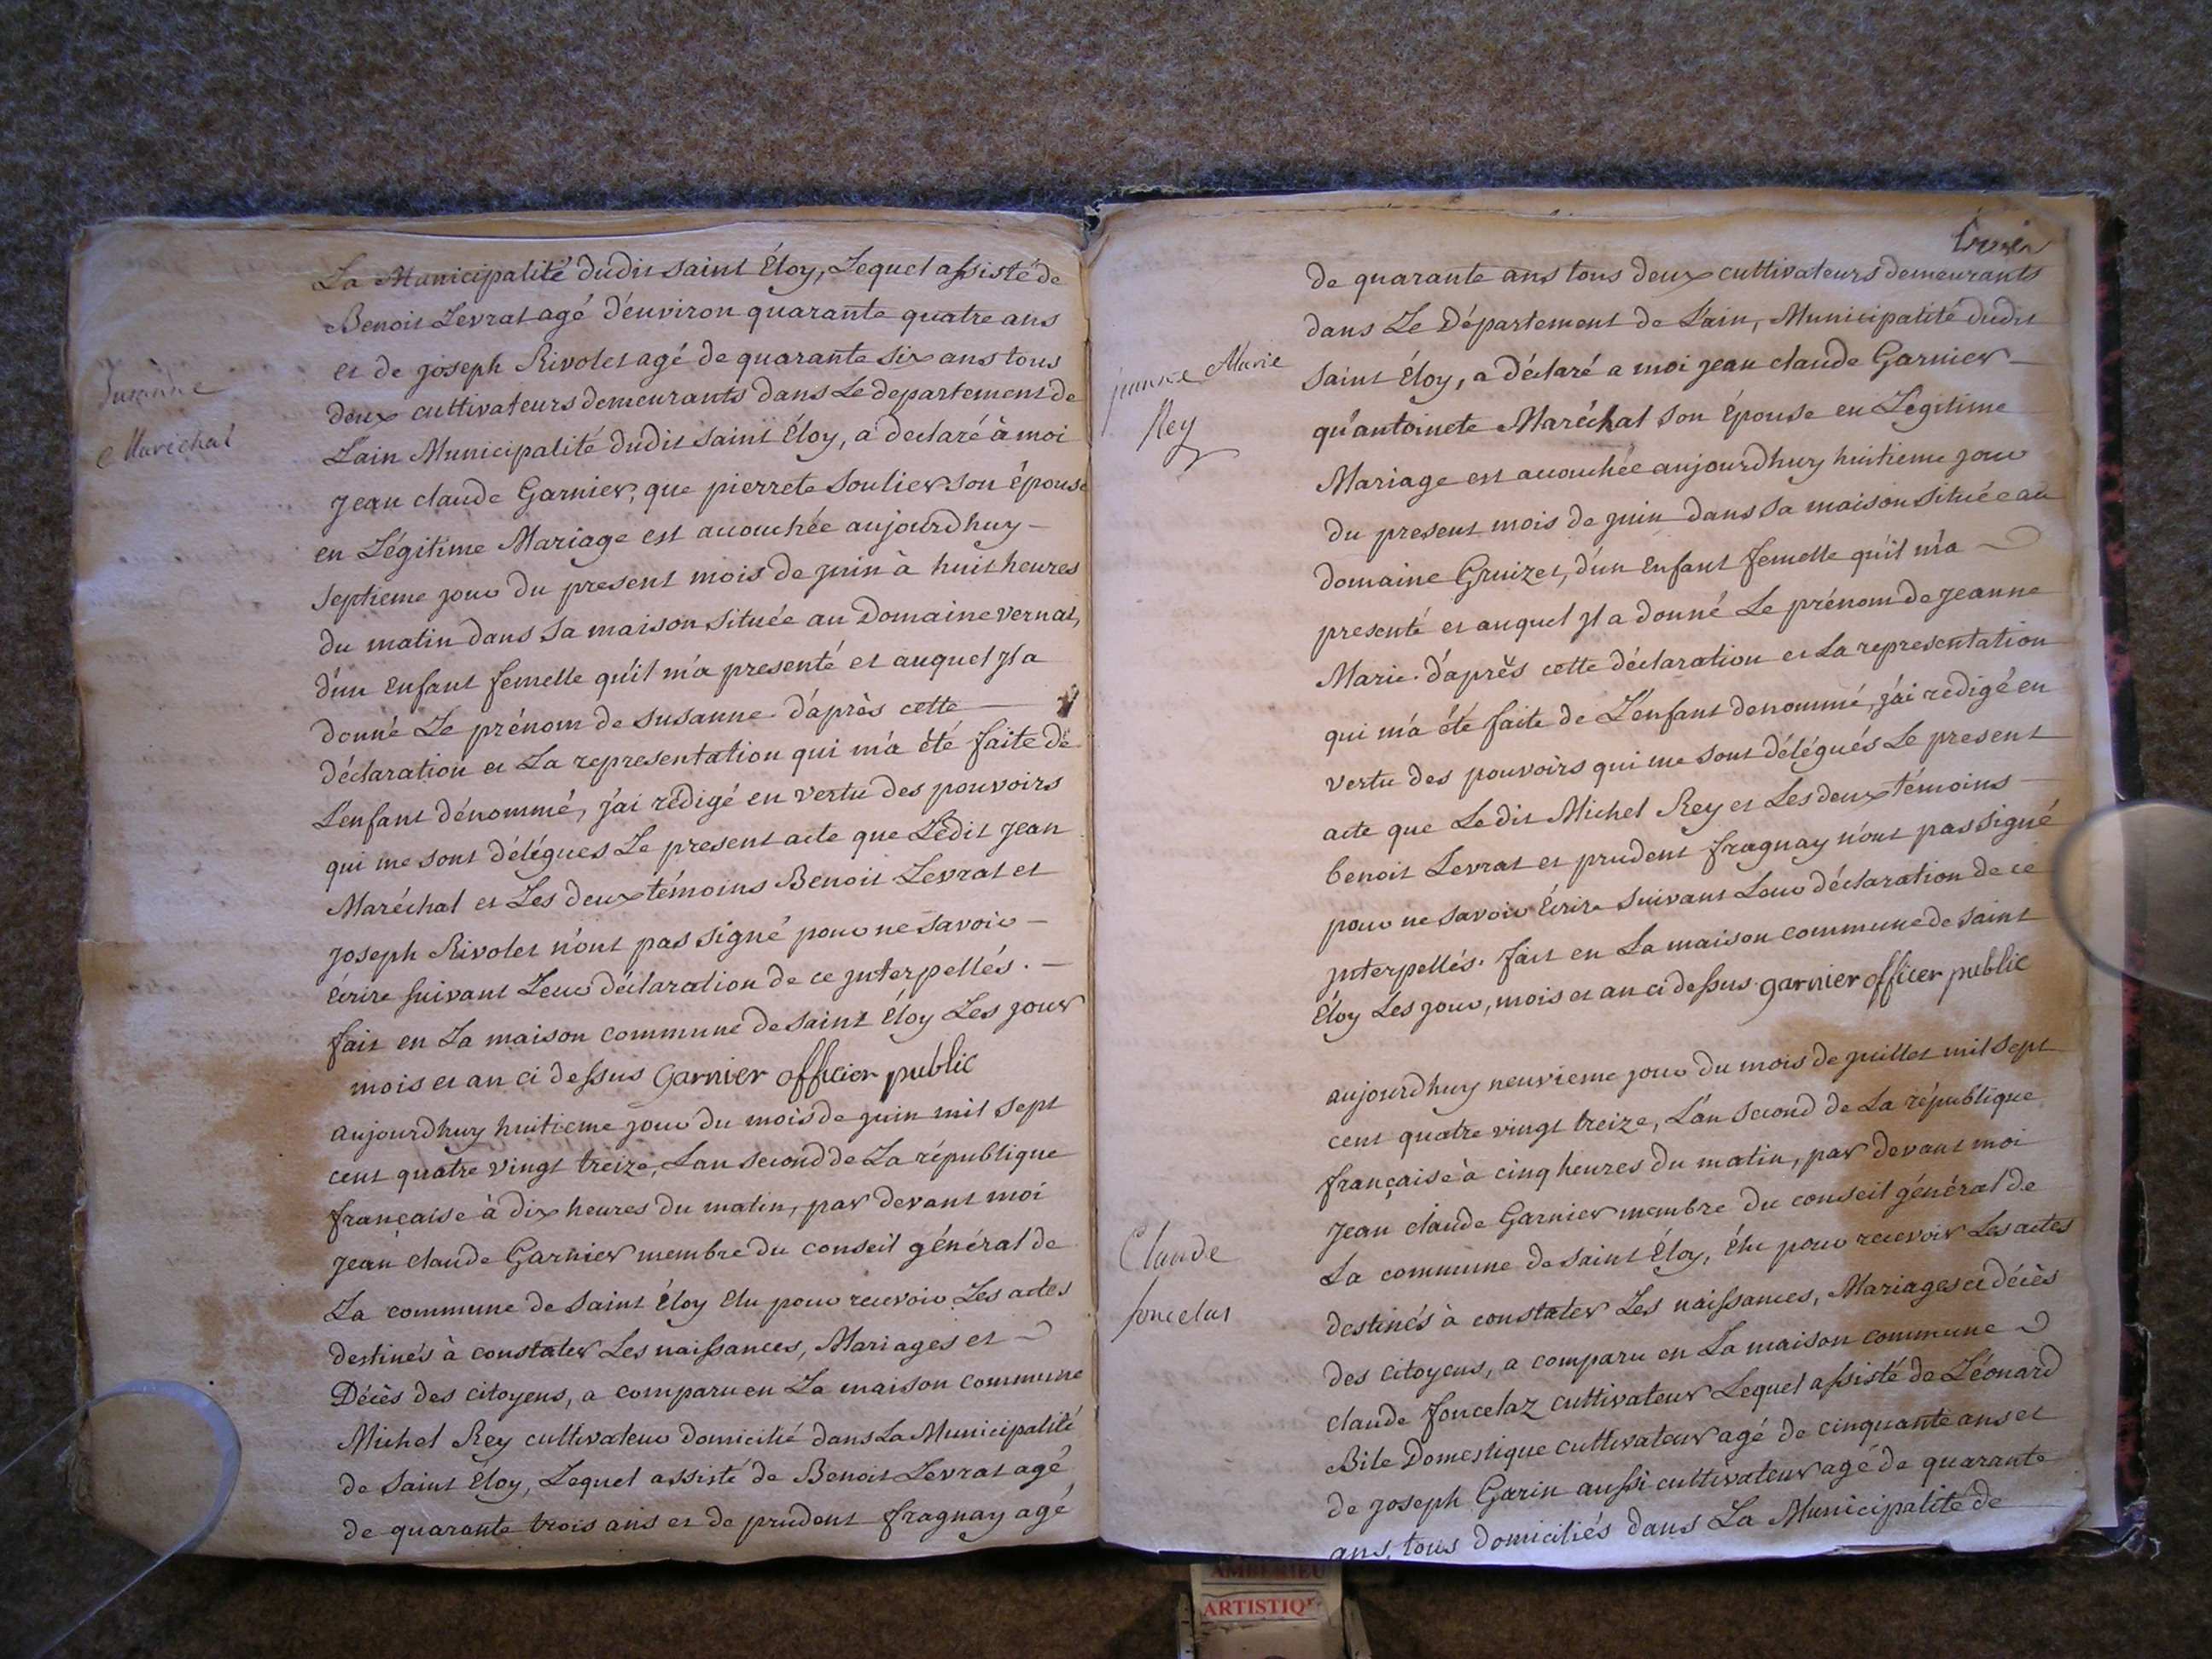 Susanne
Maréchal
La Municipalité dudit saint Éloy, Lequel assisté de
Benoit Levrat agé d'environ quarante quatre ans
et de joseph Rivolet agé de quarante six ans tous
deux cultivateurs demeurants dans Le departement de
L'ain Municipalité dudit saint Éloy, a declaré à moi
jean claude Garnier, que pierrete Soulier son épouse
en Légitime Mariage est accouchée aujourdhuy
septieme jour du present mois de juin à huit heures
du matin dans sa maison située au Domaine vernat,
d'un Enfant femelle qu'il m'a presenté et auquel jl a
donné Le prénom de susanne. d'après cette
déclaration et La representation qui m'a été faite de
L'enfant dénommé, j'ai rédigé en vertu des pouvoirs
qui me sont délégues Le present acte que Ledit jean
Maréchal et Les deux témoins Benoit Levrat et
joseph Rivolet n'ont pas signé pour ne savoir
écrire suivant Leur déclaration de ce jnterpellés.
fait en La maison commune de saint Éloy Les jour
mois et an ci dessus Garnier officier public
aujourdhuy huitieme jour du mois de juin mil sept
cent quatre vingt treize, L'an second de La république
française à dix heures du matin, par devant moi
jean claude Garnier membre du conseil général de
La commune de saint Éloy Elu pour recevoir Les actes
destinés à constater Les naissances, Mariages et
Décès des citoyens, a comparu en La maison commune
Michel Rey cultivateur domicilié dans La Municipalité
de saint Éloy, Lequel assisté de Benoit Levrat agé
de quarante trois ans et de prudent fragnay agé
de quarante ans tous deux cultivateurs demeurants
dans Le Département de Lain, Municipalité dudit
saint Éloy, a déclaré a moi jean claude Garnier
jeanne Marie
Rey
qu'antoinete Maréchal son Épouse en Légitime
Mariage est accouchée aujourdhuy huitieme jour
du present mois de juin dans sa maison située au
domaine Gruizet, d'un Enfant femelle qu'il m'a
presenté et auquel jl a donné Le prénom de jeanne
Marie. d'après cette déclaration et La representation
qui m'a été faite de L'enfant denommé, j'ai redigé en
vertu des pouvoirs qui me sont délégués Le present
acte que Le dit Michel Rey et Les deux témoins
benoit Levrat et prudent fragnay n'ont pas signé
pour ne savoir Écrire suivant Leur déclaration de ce
jnterpellés. fait en La maison commune de saint
Éloy Les jour, mois et an ci dessus. garnier officer public
aujourdhuy neuvieme jour du mois de juillet mil sept
cent quatre vingt treize, L'an second de La république
française à cinq heures du matin, par devant moi
jean claude Garnier membre du conseil général de
La commune de saint Éloy, Élu pour recevoir Les actes
Claude
foncelas
destinés à constater Les naissances, Mariages et décès
des citoyens, a comparu en La maison commune
claude foncelaz cultivateur Lequel assisté de Léonard
Bile Domestique cultivateur agé de cinquante ans et
de joseph Garin aussi cultivateur agé de quarante
ans, tous domiciliés dans La Municipalité de
AMBERIEU